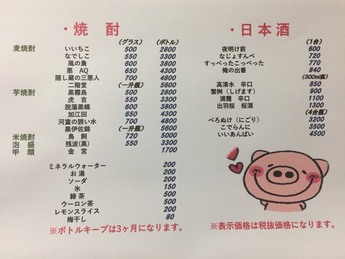 ・焼 酎
(グラス) (ボトル)
麦焼酎 いいちこ 500 2800
なでしこ 550 3300
風の泉 600 3800
悪 AQ 650 4300
隠し蔵の三悪人 700 4800
二階堂 (一升瓶) 5600
芋焼酎 黒霧島 500 2800
虎 吉 550 3300
脱藩黒蝶 600 3800
加江田 650 4300
河童の誘い水 700 4800
黒伊佐錦 (一升瓶) 5600
米焼酎 鳥 飼 700 5000
泡 盛 残波(黒) 550 3300
甲 類 金 宮 1700
ミネラルウォーター 200
お湯 200
ソーダ 200
氷 150
緑 茶 200
ウーロン茶 500
レモンスライス 200
梅干し 80
※ボトルキープは3ヶ月になります。
・日本酒
(1合)
夜明け前 600
なじょすんべ 720
すっぺったこっぺった 770
俺の出番 840
(300ml瓶)
高清水 辛口 850
繁桝(しげます) 900
清龍 辛口 1100
出羽桜 桜酒 1300
(4合瓶)
べろぬけ(にごり) 3200
こでらんに 3500
いいあんばい 4500
※表示価格は税抜価格になります。